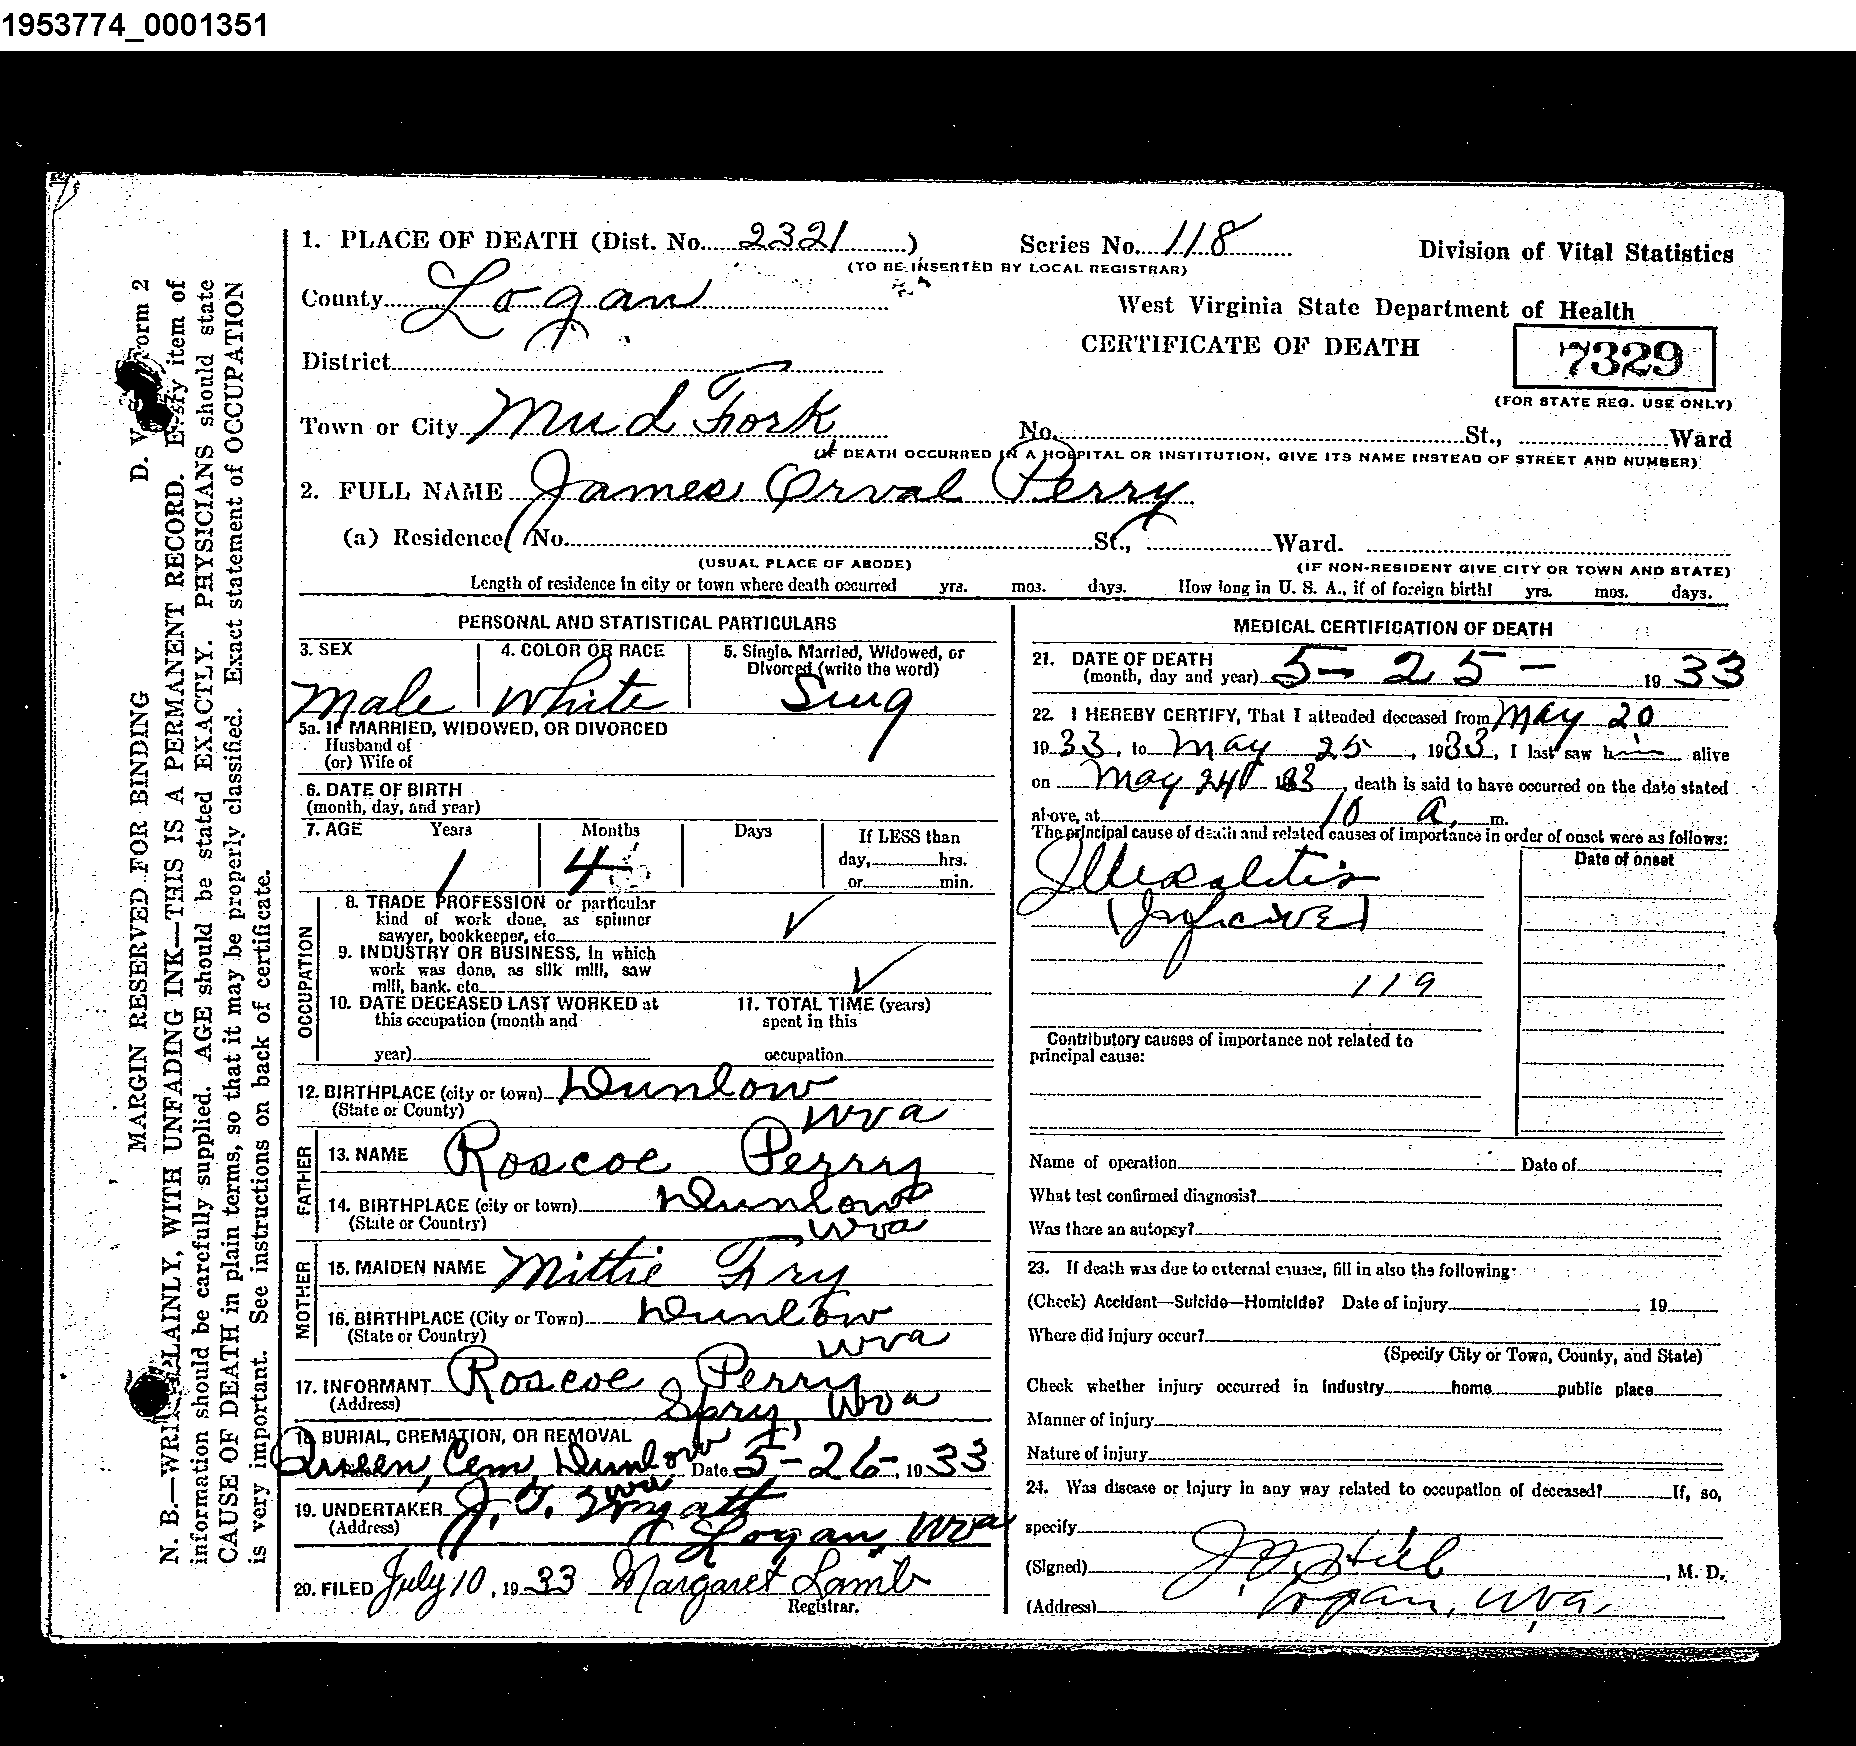 1953774_0001351
1. PLACE OF DEATH (Dist. No. 2321 ) Series No. 118 Division of Vital Statistics
(TO BE INSERTED BY LOCAL REGISTRAR)
County Logan West Virginia State Department of Health
CERTIFICATE OF DEATH 7329
District
(FOR STATE REG. USE ONLY)
Town or City Mud Fork No. St., Ward
(IF DEATH OCCURRED IN A HOSPITAL OR INSTITUTION, GIVE ITS NAME INSTEAD OF STREET AND NUMBER)
2. FULL NAME James Orval Perry
(a) Residence No. St., Ward.
(USUAL PLACE OF ABODE) (IF NON-RESIDENT GIVE CITY OR TOWN AND STATE)
Length of residence in city or town where death occurred yrs. mos. days. How long in U. S. A., if of foreign birth! yrs. mos. days.
PERSONAL AND STATISTICAL PARTICULARS
3. SEX 4. COLOR OR RACE 5. Single, Married, Widowed, or
Divorced (write the word)
Male White Sing
5a. IF MARRIED, WIDOWED, OR DIVORCED
Husband of
(or) Wife of
6. DATE OF BIRTH
(month, day, and year)
7. AGE Years Months Days If LESS than
day, hrs.
1 4 or min.
OCCUPATION
8. TRADE PROFESSION or particular
kind of work done, as spinner
sawyer, bookkeeper, etc.
9. INDUSTRY OR BUSINESS, in which
work was done, as silk mill, saw
mill, bank, etc.
10. DATE DECEASED LAST WORKED at 11. TOTAL TIME (years)
this occupation (month and spent in this
year) occupation
12. BIRTHPLACE (city or town) Dunlow
(State or County) Wva
FATHER
13. NAME Roscoe Perry
14. BIRTHPLACE (city or town) Dunlow
(State or Country) Wva
MOTHER
15. MAIDEN NAME Mittie Fry
16. BIRTHPLACE (City or Town) Dunlow
(State or Country) Wva
17. INFORMANT Roscoe Perry
(Address) Spry, Wva
18 BURIAL, CREMATION, OR REMOVAL
Queen, Cem, Dunlow Wva Date 5-26-, 1933
19. UNDERTAKER Wyatt
(Address) Logan, Wva
20. FILED July 10, 1933 Margaret Lamb
Registrar.
MEDICAL CERTIFICATION OF DEATH
21. DATE OF DEATH
(month, day and year) 5-25- 1933
22. I HEREBY CERTIFY, That I attended deceased from May 20
1933, to May 25, 1933, I last saw him alive
on May 24 1933, death is said to have occurred on the date stated
above, at 10 a. m.
The principal cause of death and related causes of importance in order of onset were as follows:
Date of onset
119
Contributory causes of importance not related to
principal cause:
Name of operation Date of
What test confirmed diagnosis?
Was there an autopsy?
23. If death was due to external causes, fill in also the following:
(Check) Accident—Suicide—Homicide? Date of injury 19
Where did injury occur?
(Specify City or Town, County, and State)
Check whether injury occurred in industry home public place
Manner of injury
Nature of injury
24. Was disease or injury in any way related to occupation of deceased? If, so,
specify
(Signed) , M. D.
(Address) Logan, Wva,
MARGIN RESERVED FOR BINDING D. V. S. Form 2
N. B.—WRITE PLAINLY, WITH UNFADING INK—THIS IS A PERMANENT RECORD. Every item of
information should be carefully supplied. AGE should be stated EXACTLY. PHYSICIANS should state
CAUSE OF DEATH in plain terms, so that it may be properly classified. Exact statement of OCCUPATION
is very important. See instructions on back of certificate.